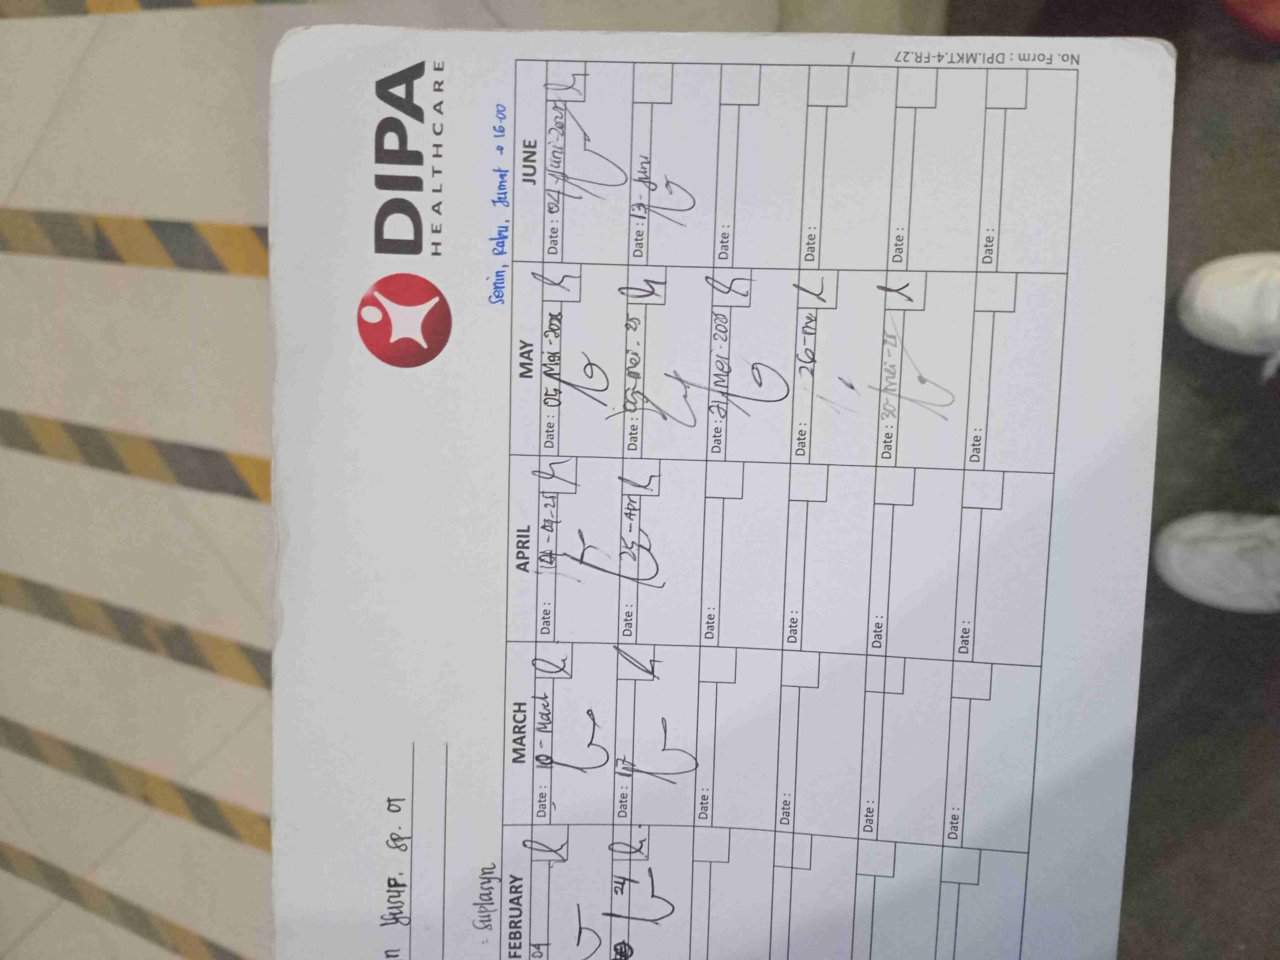 No. Form : DPI.MKT.4-FR.27
DIPA
HEALTHCARE
Yusup. Sp. OT
Senin, Rabu, Jumat → 16.00
: Suplasyn
FEBRUARY MARCH APRIL MAY JUNE
04 Date : 10 - Maret Date : Date : 05 Mei - 2025 Date : 04 - Juni - 2025
24 Date : 17 Date : 25 - Apr Date : Mei - 25 Date : 13 - Juni
Date : Date : Date : 21 Mei - 2025 Date :
Date : Date : 26 - Mei Date :
Date : Date : Date : 30 - Mei - 25 Date :
Date : Date : Date : Date :